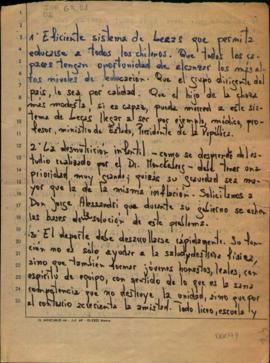 1- Eficiente sistema de becas que permita
educarse a todos los chilenos. Que todos los ca-
paces tengan oportunidad de alcanzar los más al-
tos niveles de educación. Que el grupo dirigente del
país, lo sea por calidad. Que el hijo de la choza
mas modesta, si es capaz, pueda merced a este sis-
tema de becas llegar a ser por ejemplo, médico, pro-
fesor, ministro de Estado, Presidente de la República.
2- La desnutrición infantil - como se desprende del es-
tudio realizado por el Dr. - debe tener una
prioridad muy grande; quizás su gravedad sea ma-
yor que la de la misma inflación. Solicitamos a
Don Jorge Alessandri que durante su gobierno se echen
las bases de solución de este problema.
3- El deporte debe desarrollarse rápidamente. Su fun-
ción no es solo ayudar a la salud y destreza física,
sino que también formar jóvenes honestos, leales, con
espíritu de equipo, con sentido de lo que es la sana
competencia que no destruye la unidad, sino que por
el contrario acrecienta la amistad. Todo liceo, escuela y